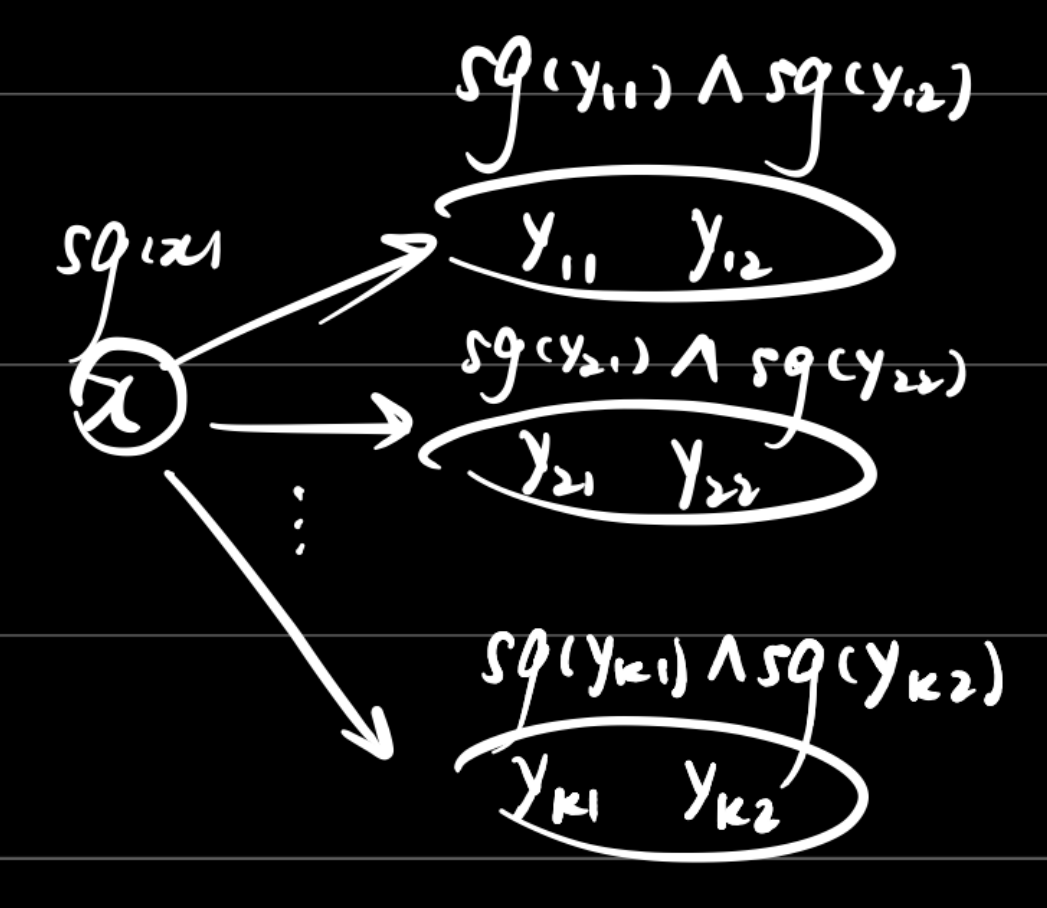 sg(y₁₁) ∧ sg(y₁₂)
y₁₁ y₁₂
sg(x)
sg(y₂₁) ∧ sg(y₂₂)
x
y₂₁ y₂₂
⋮
sg(yₖ₁) ∧ sg(yₖ₂)
yₖ₁ yₖ₂